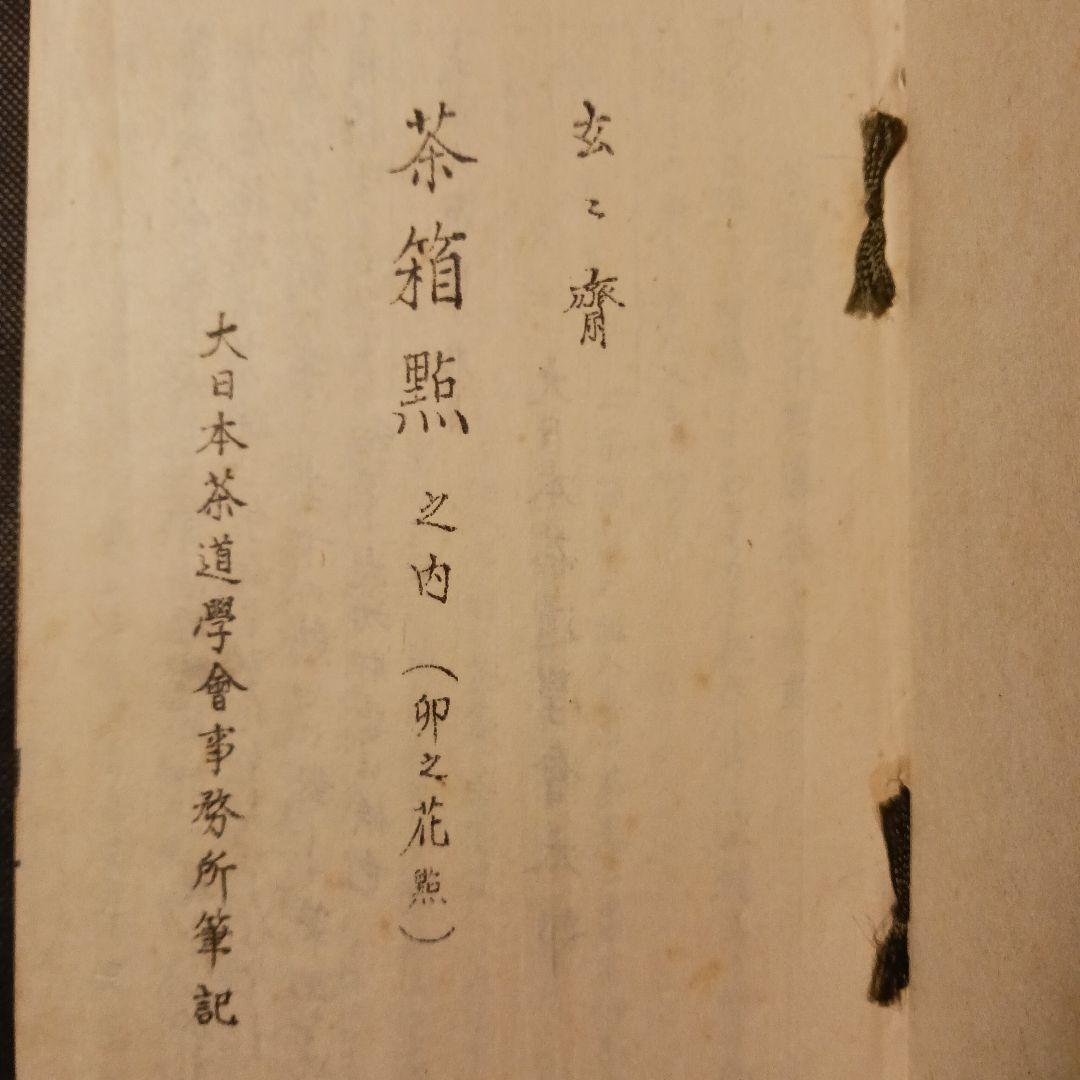 玄〻齋
茶箱點之内（卯之花點）
大日本茶道學會事務所筆記